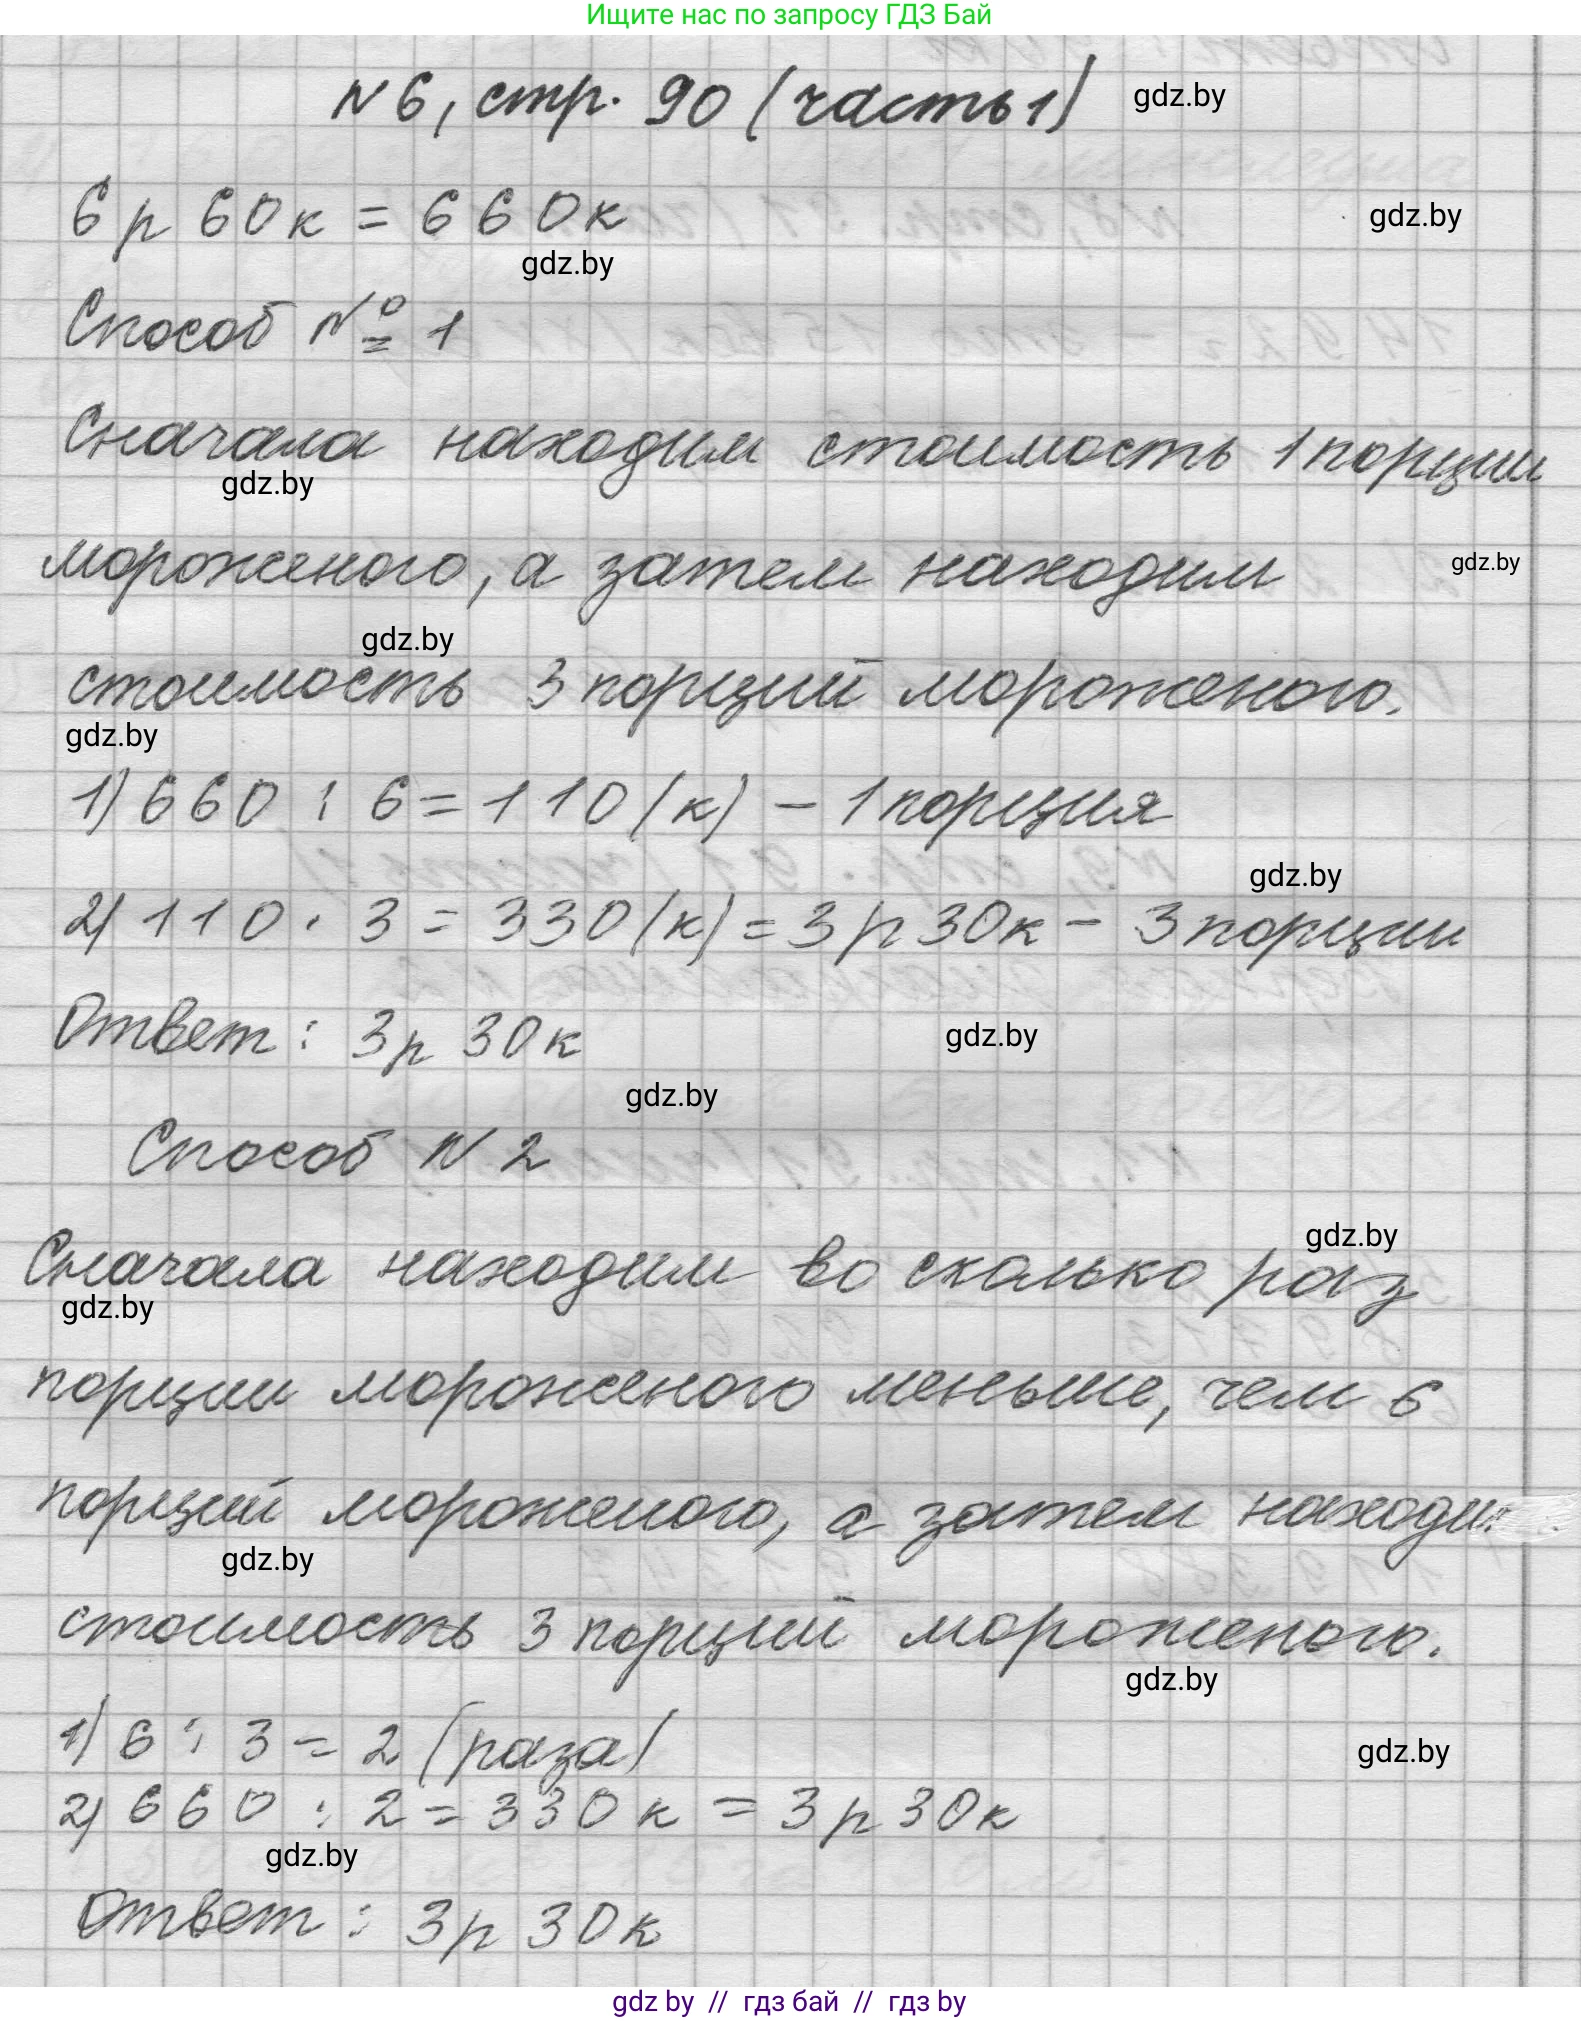 Ищите нас по запросу ГДЗ Бай
N6, стр. 90 (часть 1) gdz.by
6р 60к = 660к gdz.by
gdz.by
Способ № 1
Сначала находим стоимость 1 порции
gdz.by
мороженого, а затем находим gdz.by
gdz.by
стоимость 3 порций мороженого.
gdz.by
1) 660 : 6 = 110 (к) - 1 порция
gdz.by
2) 110 · 3 = 330 (к) = 3р 30к - 3 порции
Ответ: 3р 30к gdz.by
gdz.by
Способ N 2
gdz.by
Сначала находим во сколько раз
gdz.by
порции мороженого меньше, чем 6
порций мороженого, а затем находи
gdz.by
стоимость 3 порций мороженого.
gdz.by
1) 6 : 3 = 2 (раза) gdz.by
2) 660 : 2 = 330 к = 3р 30к
gdz.by
Ответ: 3р 30к
gdz by // гдз бай // гдз by